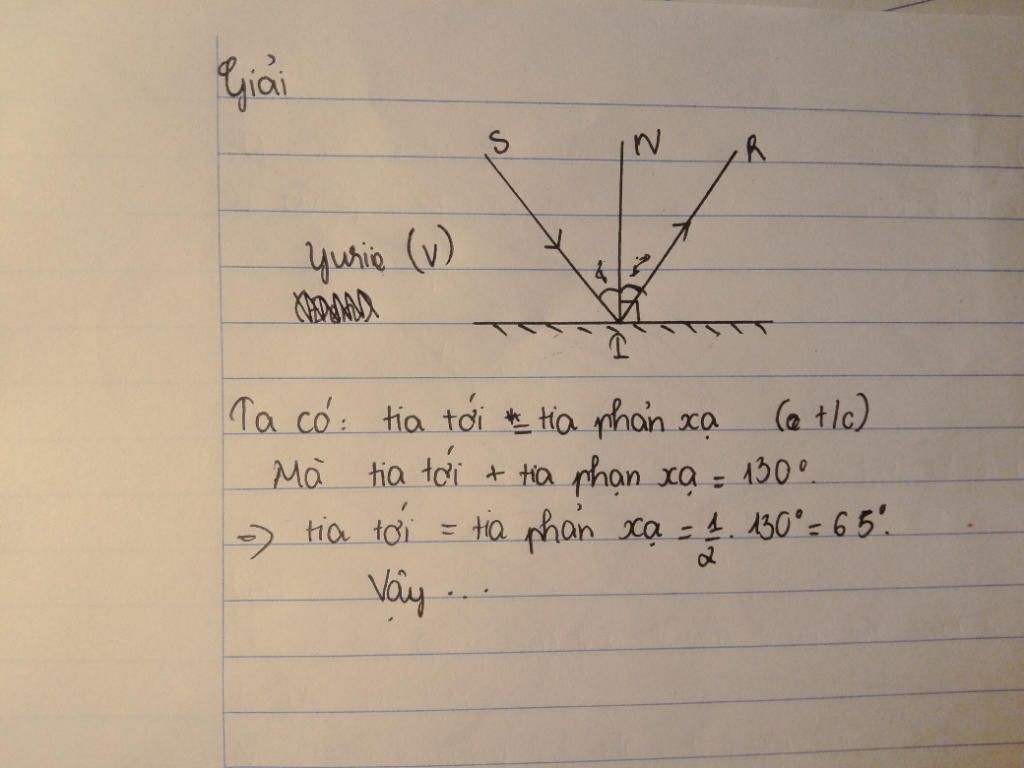 Giải
S N R
Yurie (v)
i i'
I
Ta có: tia tới = tia phản xạ (t/c)
Mà tia tới + tia phạn xạ = 130°.
=> tia tới = tia phản xạ = 1/2 . 130° = 65°.
Vậy ...